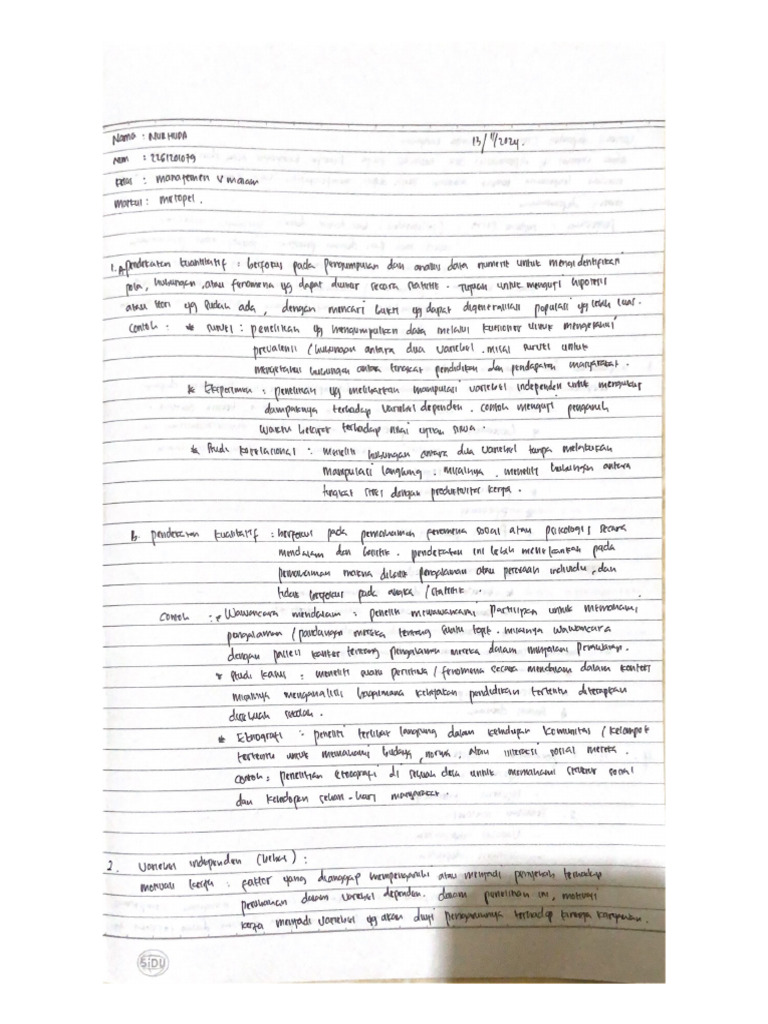 Nama : NUR HUDA 13/11/2024.
Nim : 2261201079
Kelas : Manajemen V malam
Matkul : Metopel.
1. A. Pendekatan kuantitatif : berfokus pada pengumpulan dan analisis data numerik untuk mengidentifikasi
pola, hubungan, atau fenomena yg dapat diukur secara statistik. Tujuan untuk menguji hipotesis
atau teori yg sudah ada, dengan mencari bukti yg dapat digeneralisasi populasi yg lebih luas.
Contoh : * survei : penelitian yg mengumpulkan data melalui kuesioner untuk mengetahui
prevalensi / hubungan antara dua variabel. misal survei untuk
mengetahui hubungan antara tingkat pendidikan dan pendapatan masyarakat.
* Eksperimen : penelitian yg melibatkan manipulasi variabel independen untuk mengukur
dampaknya terhadap variabel dependen. contoh menguji pengaruh
waktu belajar terhadap nilai ujian siswa.
* Studi korelasional : meneliti hubungan antara dua variabel tanpa melakukan
manipulasi langsung. misalnya, meneliti hubungan antara
tingkat stres dengan produktivitas kerja.
B. Pendekatan kualitatif : berfokus pada pemahaman fenomena sosial atau psikologis secara
mendalam dan holistik. pendekatan ini lebih menekankan pada
pemahaman makna dibalik pengalaman atau perasaan individu, dan
tidak berfokus pada angka / statistik.
Contoh : * Wawancara mendalam : peneliti mewawancarai partisipan untuk memahami
pengalaman / pandangan mereka tentang suatu topik. misalnya wawancara
dengan pasien kanker tentang pengalaman mereka dalam menjalani perawatan.
* Studi kasus : meneliti suatu peristiwa / fenomena secara mendalam dalam konteks
misalnya menganalisis bagaimana kebijakan pendidikan tertentu diterapkan
disebuah sekolah.
* Etnografi : peneliti terlibat langsung dalam kehidupan komunitas / kelompok
tertentu untuk memahami budaya, norma, atau interaksi sosial mereka.
Contoh : penelitian etnografi di sebuah desa untuk memahami struktur sosial
dan kehidupan sehari-hari masyarakat.
2. Variabel independen (bebas) :
motivasi kerja : faktor yang dianggap mempengaruhi atau menjadi penyebab terhadap
perubahan dalam variabel dependen. dalam penelitian ini, motivasi
kerja menjadi variabel yg akan diuji pengaruhnya terhadap kinerja karyawan.
SiDU